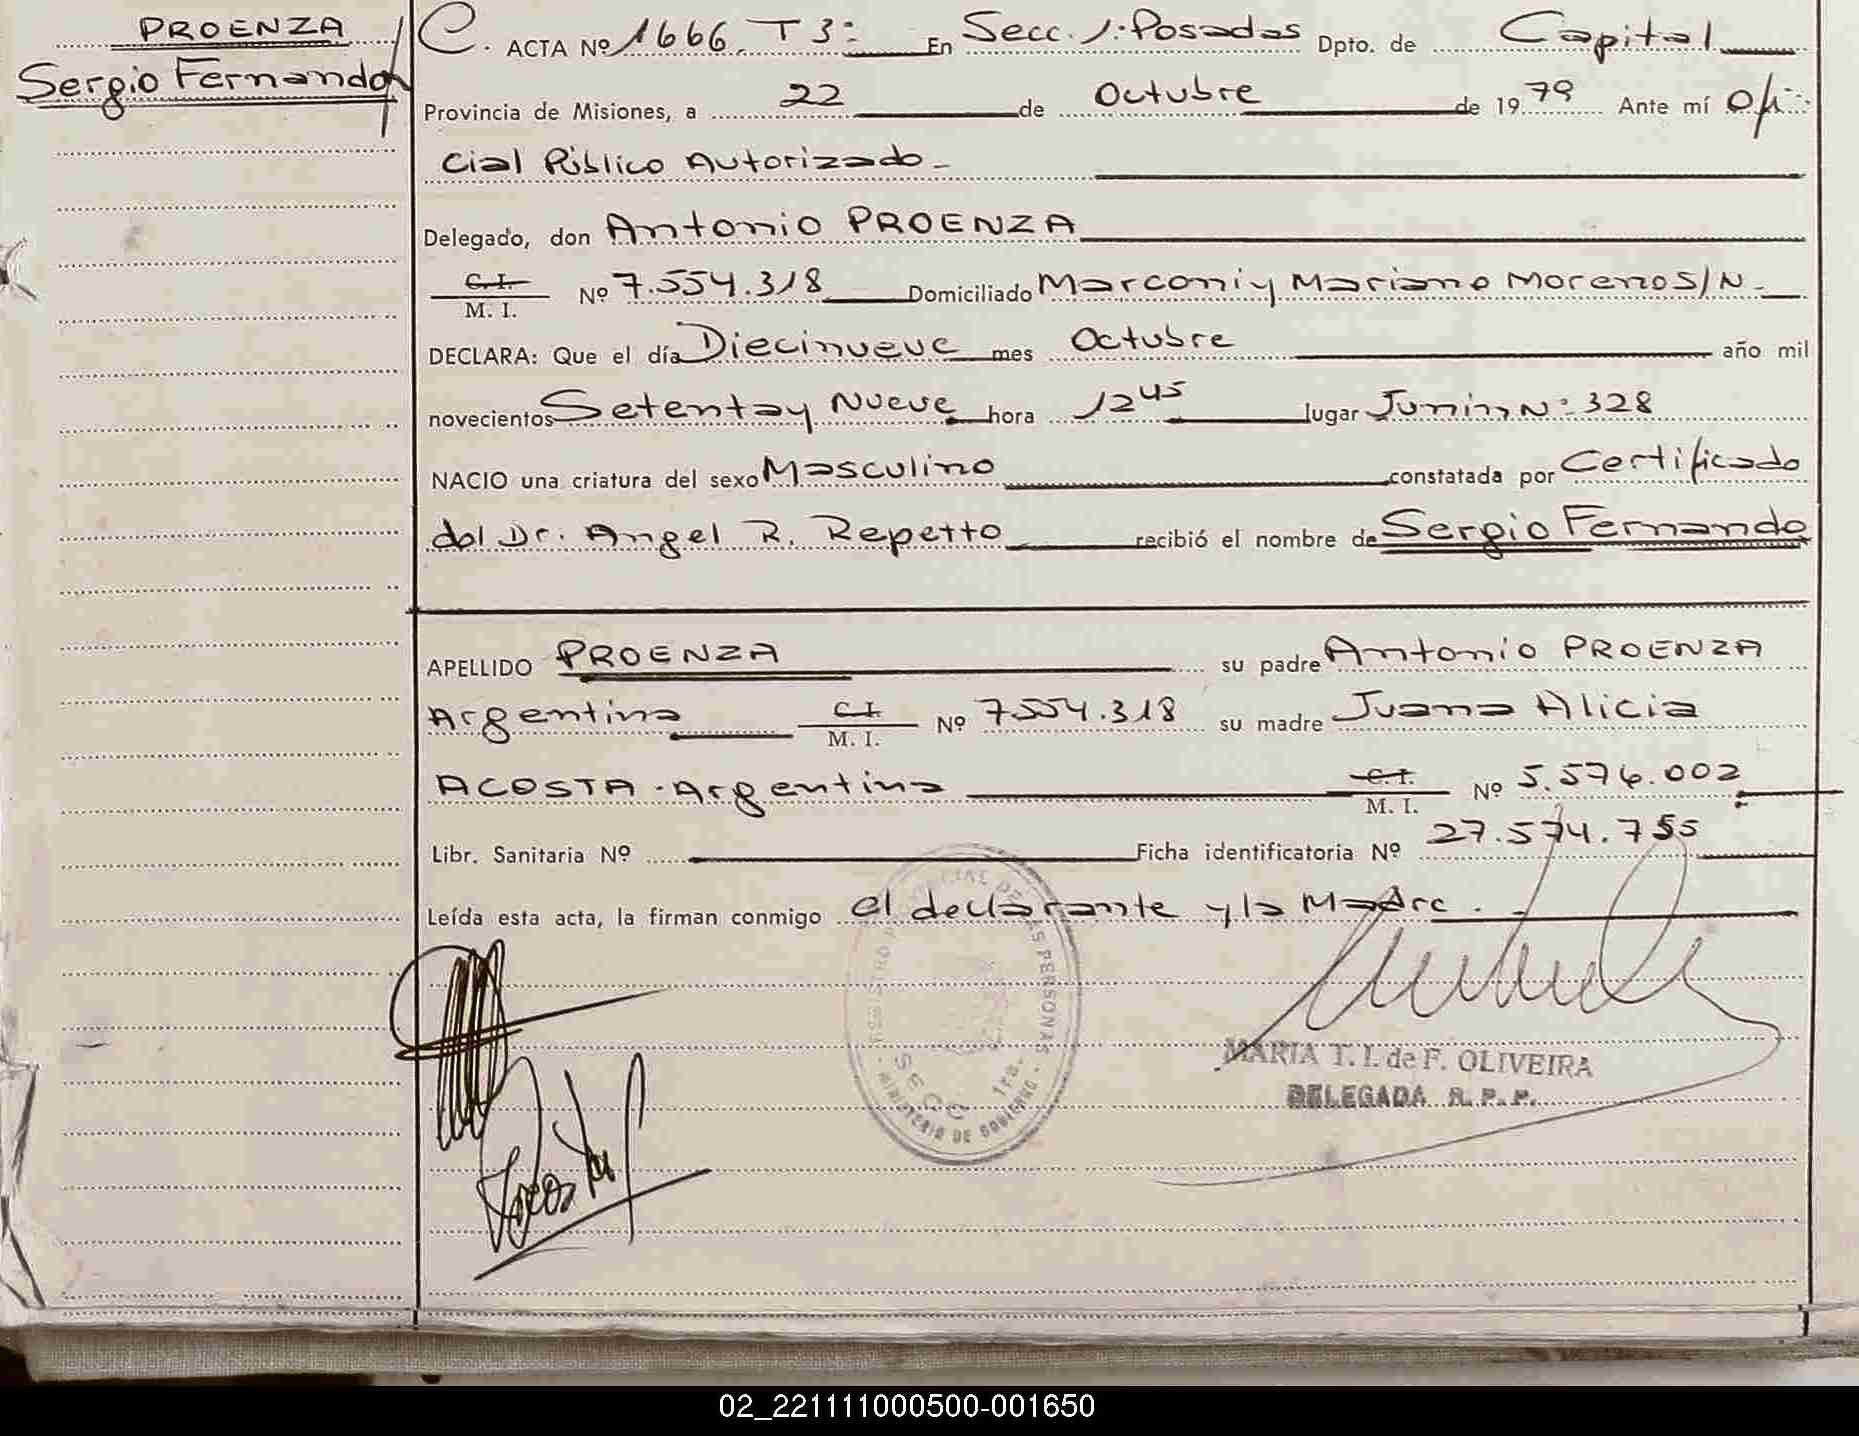 PROENZA
Sergio Fernando
C. ACTA Nº 1666. T 3: En Secc. 1: Posadas Dpto. de Capital
Provincia de Misiones, a 22 de Octubre de 1979 Ante mí Ofi
cial Público Autorizado -
Delegado, don Antonio PROENZA
C.I. M. I. Nº 7.554.318 Domiciliado Marconi y Mariano Moreno S/N -
DECLARA: Que el día Diecinueve mes Octubre año mil
novecientos Setenta y Nueve hora 12 45 lugar Junin Nº: 328
NACIO una criatura del sexo Masculino constatada por Certificado
del Dr. Angel R. Repetto recibió el nombre de Sergio Fernando
APELLIDO PROENZA su padre Antonio PROENZA
Argentino C.I. M. I. Nº 7.554.318 su madre Juana Alicia
ACOSTA - Argentina C.I. M. I. Nº 5.576.002
Libr. Sanitaria Nº Ficha identificatoria Nº 27.574.755
Leída esta acta, la firman conmigo el declarante y la Madre. -
REGISTRO PROVINCIAL DE LAS PERSONAS
SECC. 1ra.
MINISTERIO DE GOBIERNO
MARIA T. I. de F. OLIVEIRA
DELEGADA R. P. P.
02_221111000500-001650